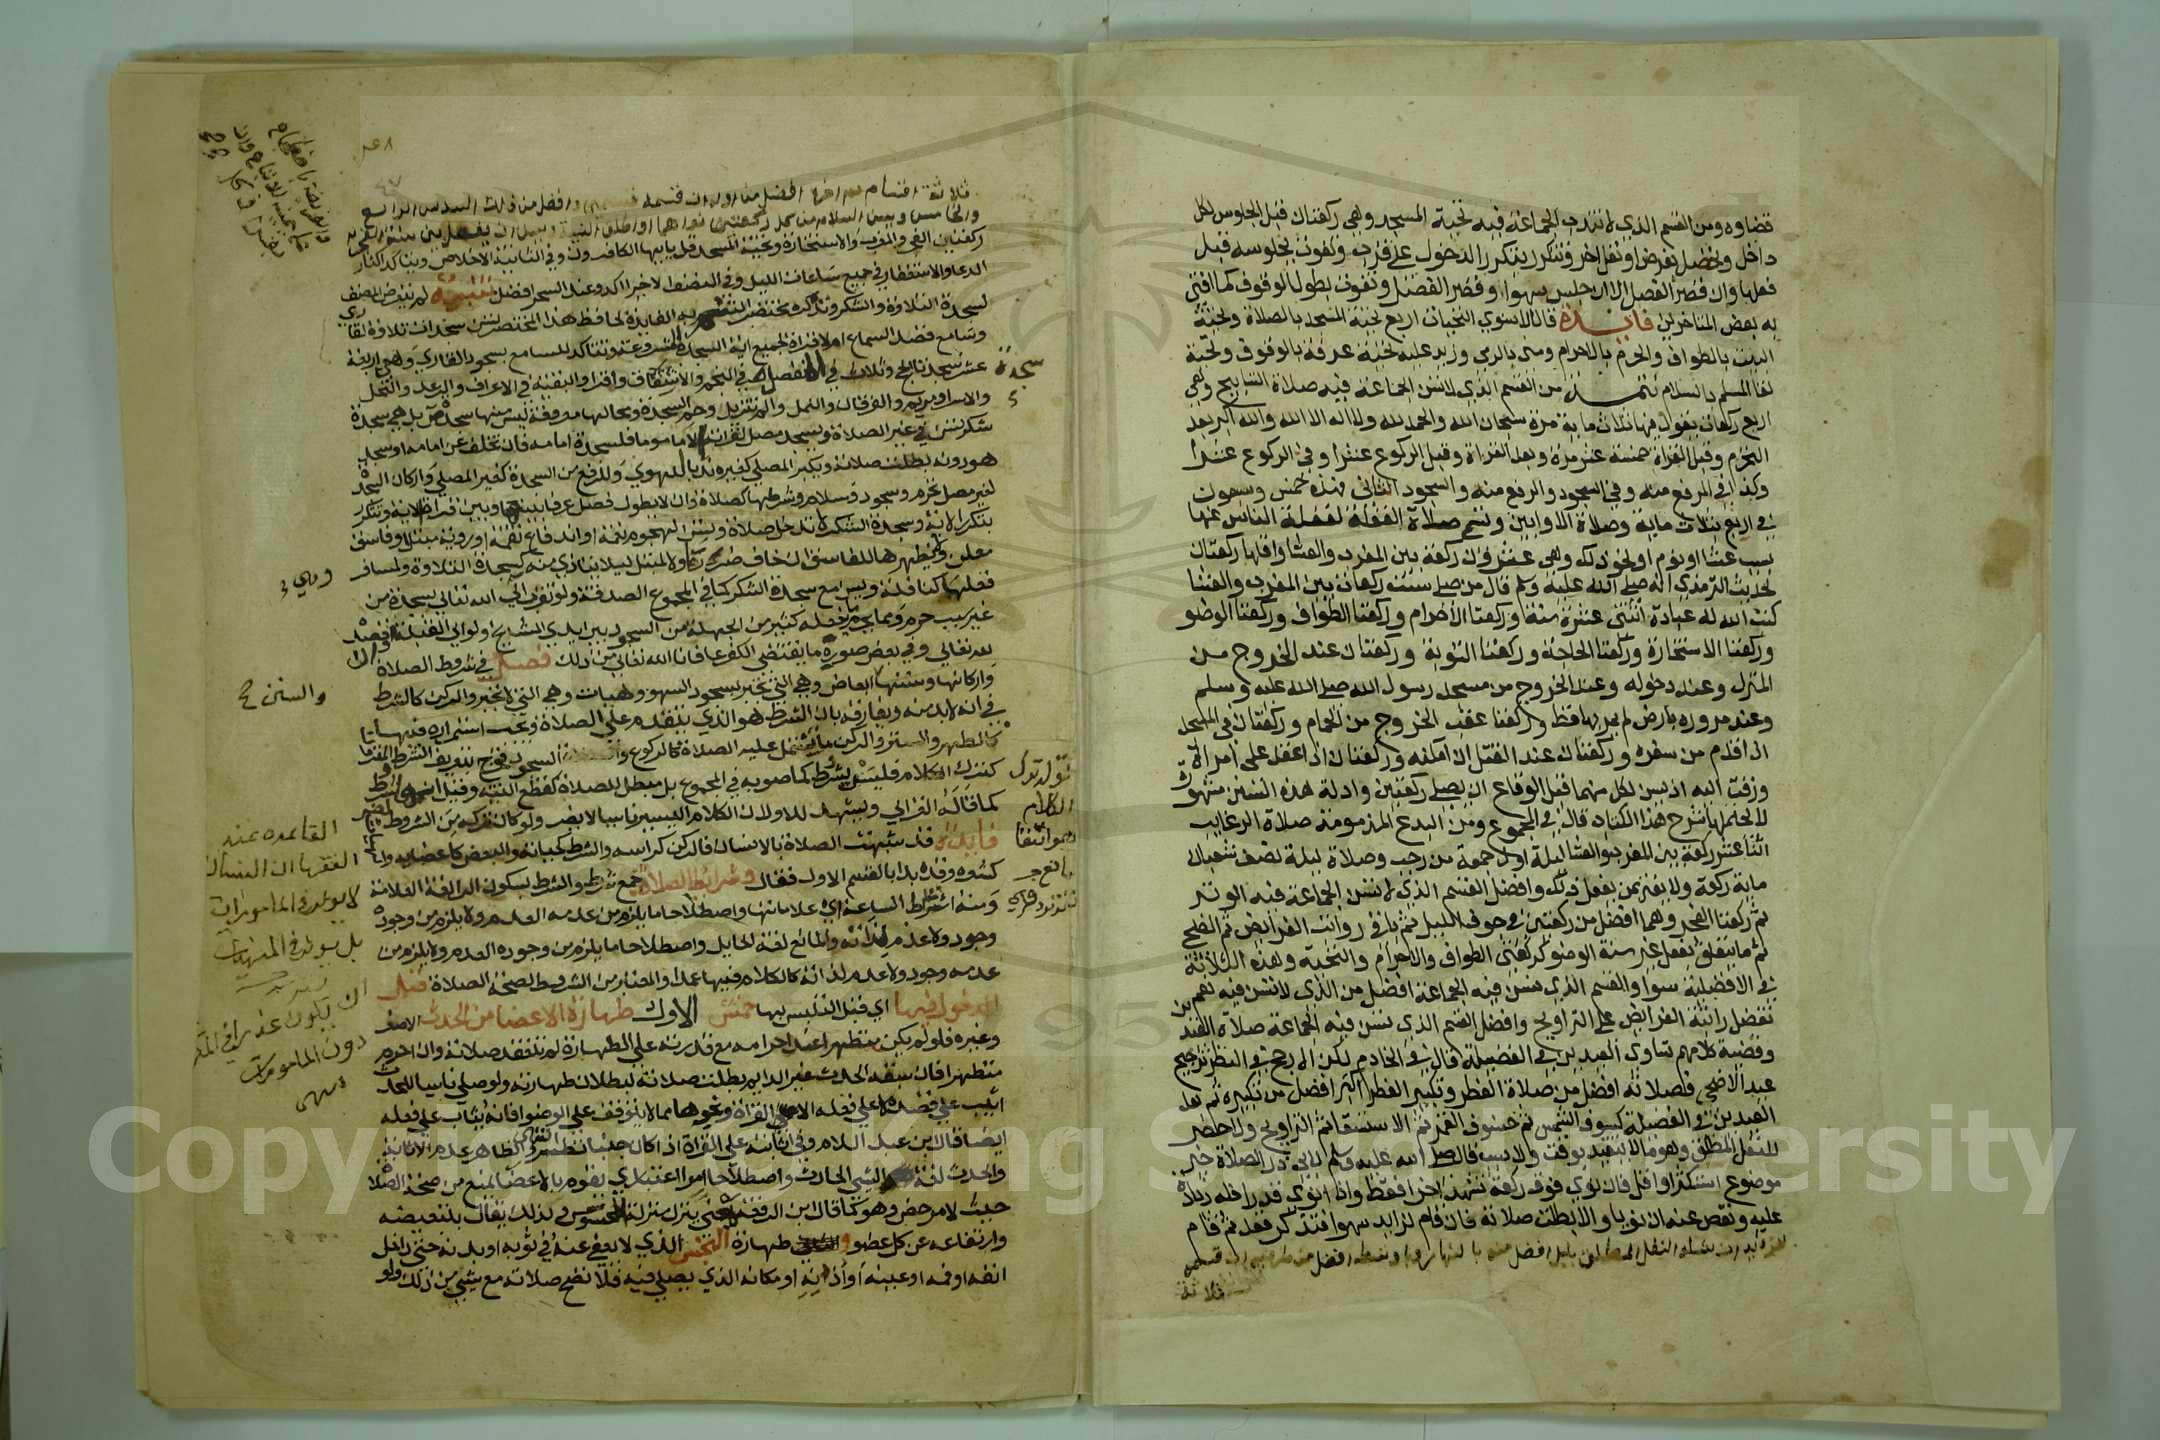 قضاوه ومن القسم الذي لا تندب الجماعة فيه تحية المسجد وهي ركعتان قبل الجلوس لكل
داخل وتحصل بفرض او نفل اخر وتتكرر بتكرر الدخول على قرب وتفوت بجلوسه قبل
فعلها وان قصر الفصل الا ان جلس سهوا وقصر الفصل وتفوت بطول الوقوف كما افتى
به بعض المتاخرين فايدة قال الاسنوي التحيات اربع تحية المسجد بالصلاة وتحية
البيت بالطواف والحرم بالاحرام ومنى بالرمى وزيد عليه تحية عرفة بالوقوف وتحية
لقا المسلم بالسلام تتمة من القسم الذي لا تسن الجماعة فيه صلاة التسابيح وهي
اربع ركعات يقول فيها ثلاث ماية مرة سبحان الله والحمد لله ولا اله الا الله والله اكبر بعد
التحرم وقبل القراة خمسة عشر مرة وبعد القراة وقبل الركوع عشرا وفي الركوع عشرا
وكذا في الرفع منه وفي السجود والرفع منه والسجود الثاني فهذه خمس وسبعون
في اربع بثلاث ماية وصلاة الاوابين وتسمى صلاة الغفلة لغفلة الناس عنها
بسبب عشا او نوم او نحو ذلك وهي عشرون ركعة بين المغرب والعشا واقلها ركعتان
لحديث الترمذي انه صلى الله عليه وسلم قال من صلى ست ركعات بين المغرب والعشا
كتب الله له عبادة اثنتي عشرة سنة وركعتا الاحرام وركعتا الطواف وركعتا الوضو
وركعتا الاستخارة وركعتا الحاجة وركعتا التوبة وركعتان عند الخروج من
المنزل وعند دخوله وعند الخروج من مسجد رسول الله صلى الله عليه وسلم
وعند مروره بارض لم يمر بها قط وركعتا عقب الخروج من الحمام وركعتان في المسجد
اذا قدم من سفره وركعتان عند القتل ان امكنه وركعتان اذا عقد على امراة
وزفت اليه اذ يسن لكل منهما قبل الوقاع ان يصلي ركعتين وادلة هذه السنن مشهورة
لا يحتملها شرح هذا الكتاب قال في المجموع ومن البدع المذمومة صلاة الرغايب
اثنتا عشر ركعة بين المغرب والعشا ليلة اول جمعة من رجب وصلاة ليلة نصف شعبان
ماية ركعة ولا يغتر بمن يفعل ذلك وافضل القسم الذي لا تسن الجماعة فيه الوتر
ثم ركعتا الفجر وهما افضل من ركعتين في جوف الليل ثم باقي رواتب الفرايض ثم الضحى
ثم ما يتعلق بفعل غير سنة الوضو كركعتي الطواف والاحرام والتحية وهذه الثلاثة
في الافضلية سوا والقسم الذي تسن فيه الجماعة افضل من الذي لا تسن فيه نعم
تفضل راتبة الفرايض على التراويح وافضل القسم الذي تسن فيه الجماعة صلاة العيدين
وقضية كلامهم تساوي العيدين في الفضيلة قال في الخادم لكن الارجح في النظر ترجيح
عيد الاضحى فصلاته افضل من صلاة الفطر وتكبير الفطر اكثر افضل من تكبيره ثم بعد
العيدين في الفضيلة كسوف الشمس ثم خسوف القمر ثم الاستسقا ثم التراويح ولا حصر
للنفل المطلق وهو ما لا يتقيد بوقت ولا سبب قال صلى الله عليه وسلم لابي ذر الصلاة خير
موضوع استكثر او اقل فان نوى فوق ركعة تشهد اخرا فقط واذا نوى قدرا فله زيادة
عليه ونقص عنه ان نويا والا بطلت صلاته فان قام لزايد سهوا فتذكر قعد ثم قام
للزيادة ان شاء والنفل المطلق بليل افضل منه بالنهار واوسطه افضل من طرفيه ان قسمه
ثلاثة
ثلاثة اقسام ثم اخره افضل من اوله ان قسمه قسمين وافضل من ذلك السدس الرابع
والخامس ويسن السلام من كل ركعتين نواهما او اطلق النية ويسن ان يفصل بين سنة الفجر
ركعتين الفجر والمغرب والاستخارة وتحية المسجد قل يا ايها الكافرون وفي الثانية الاخلاص ويتاكد اكثار
الدعا والاستغفار في جميع ساعات الليل وفي النصف الاخير اكد وعند السحر افضل تنبيه لم يتعرض المصنف
لسجدة التلاوة والشكر ونذكره مختصرا لتتم به الفايدة لحافظ هذا المختصر تسن سجدات تلاوة لقاري
وسامع قصد السماع ام لا قراة لجميع اية السجدة مشروعة وتتاكد للسامع بسجود القاري وهي اربعة
عشر سجدتا الحج وثلاث في المفصل في النجم والانشقاق واقرا والبقية في الاعراف والرعد والنحل
والاسرا ومريم والفرقان والنمل والم تنزيل وحم السجدة ومحالها معروفة ليس منها سجدة ص بل هي سجدة
شكر تسن في غير الصلاة ويسجد مصل لقراته الا ماموما فلسجدة امامه فان تخلف عن امامه او سجد
هو دونه بطلت صلاته ويكبر المصلي كغيره ندبا للهوي وللرفع من السجدة كغير المصلي واركان السجدة
لغير مصل تحرم وسجود وسلام وشرطها كصلاة وان لا يطول فصل عرفا بينها وبين قراة الاية وتتكرر
بتكرر الاية وسجدة الشكر لا تدخل صلاة وتسن لهجوم نعمة او اندفاع نقمة او روية مبتلى وفاسق
معلن ويظهرها للفاسق ان لم يخاف ضرره لا لمبتلى ليلا يتاذى وهي كسجدة التلاوة ولمسافر
فعلها كنافلة ويسن مع سجدة الشكر كما في المجموع الصدقة ولو تقرب الى الله تعالى بسجدة من
غير سبب حرم ومما يحرم ما يفعله كثير من الجهلة من السجود بين ايدي المشايخ ولو الى القبلة او قصد
لله تعالى وفي بعض صوره ما يقتضي الكفر عافانا الله تعالى من ذلك فصل في شروط الصلاة
واركانها وسننها ابعاض وهي التي تجبر بسجود السهو وهيئات وهي التي لا تجبر والركن كالشرط
في انه لا بد منه ويفارقه بان الشرط هو الذي يتقدم على الصلاة ويجب استمراره فيها
كالطهر والستر والركن ما تشتمل عليه الصلاة كالركوع والسجود فخرج بتعريف الشرط التروك
كترك الكلام فليس بشرط كما صوبه في المجموع بل مبطل للصلاة كقطع النية وقيل انه شرط
كما قاله الغزالي ويشهد للاول ان الكلام اليسير ناسيا لا يضر ولو كان تركه من الشروط لضر
فايدة قد شبهت الصلاة بالانسان فالركن كراسه والشرط كحياته والبعض كاعضايه والهيئات
كشعره وقد بدا بالقسم الاول فقال وشرايط الصلاة جمع شرط والشرط بسكون الرا لغة العلامة
ومنه اشراط الساعة اي علاماتها واصطلاحا ما يلزم من عدمه العدم ولا يلزم من وجوده
وجود ولا عدم لذاته والمانع لغة الحايل واصطلاحا ما يلزم من وجوده العدم ولا يلزم من
عدمه وجود ولا عدم لذاته كالكلام فيها عمدا والمعتبر من الشروط لصحة الصلاة قبل
الدخول فيها اي قبل التلبس بها خمس الاول طهارة الاعضا من الحدث الاصغر
وغيره فلو لم يكن متطهرا عند احرامه مع قدرته على الطهارة لم تنعقد صلاته وان احرم
متطهرا فان سبقه الحدث غير الدايم بطلت صلاته لبطلان طهارته ولو صلى ناسيا للحدث
اثيب على قصده لا على فعله الا القراة ونحوها مما لا يتوقف على الوضو فانه يثاب على فعله
ايضا قال ابن عبد السلام وفي اثابته على القراة اذا كان جنبا نظر والظاهر عدم الاثابة
والحدث لغة الشي الحادث واصطلاحا امر اعتباري يقوم بالاعضا يمنع من صحة الصلاة
حيث لا مرخص وهو كما قال ابن الرفعة معنى ينزل منزلة المحسوس ولذلك يقال بتبعيضه
وارتفاعه عن كل عضو و طهارة النجس الذي لا يعفى عنه في ثوبه او بدنه حتى داخل
انفه او فمه او عينه او اذنه او مكانه الذي يصلي فيه فلا تصح صلاته مع شي من ذلك ولو
سجدة
والسنن ح
القاعدة عند
الفقها ان النسيان
لا يوثر في المامورات
بل يوثر في المنهيات
دون المامورات
انتهى